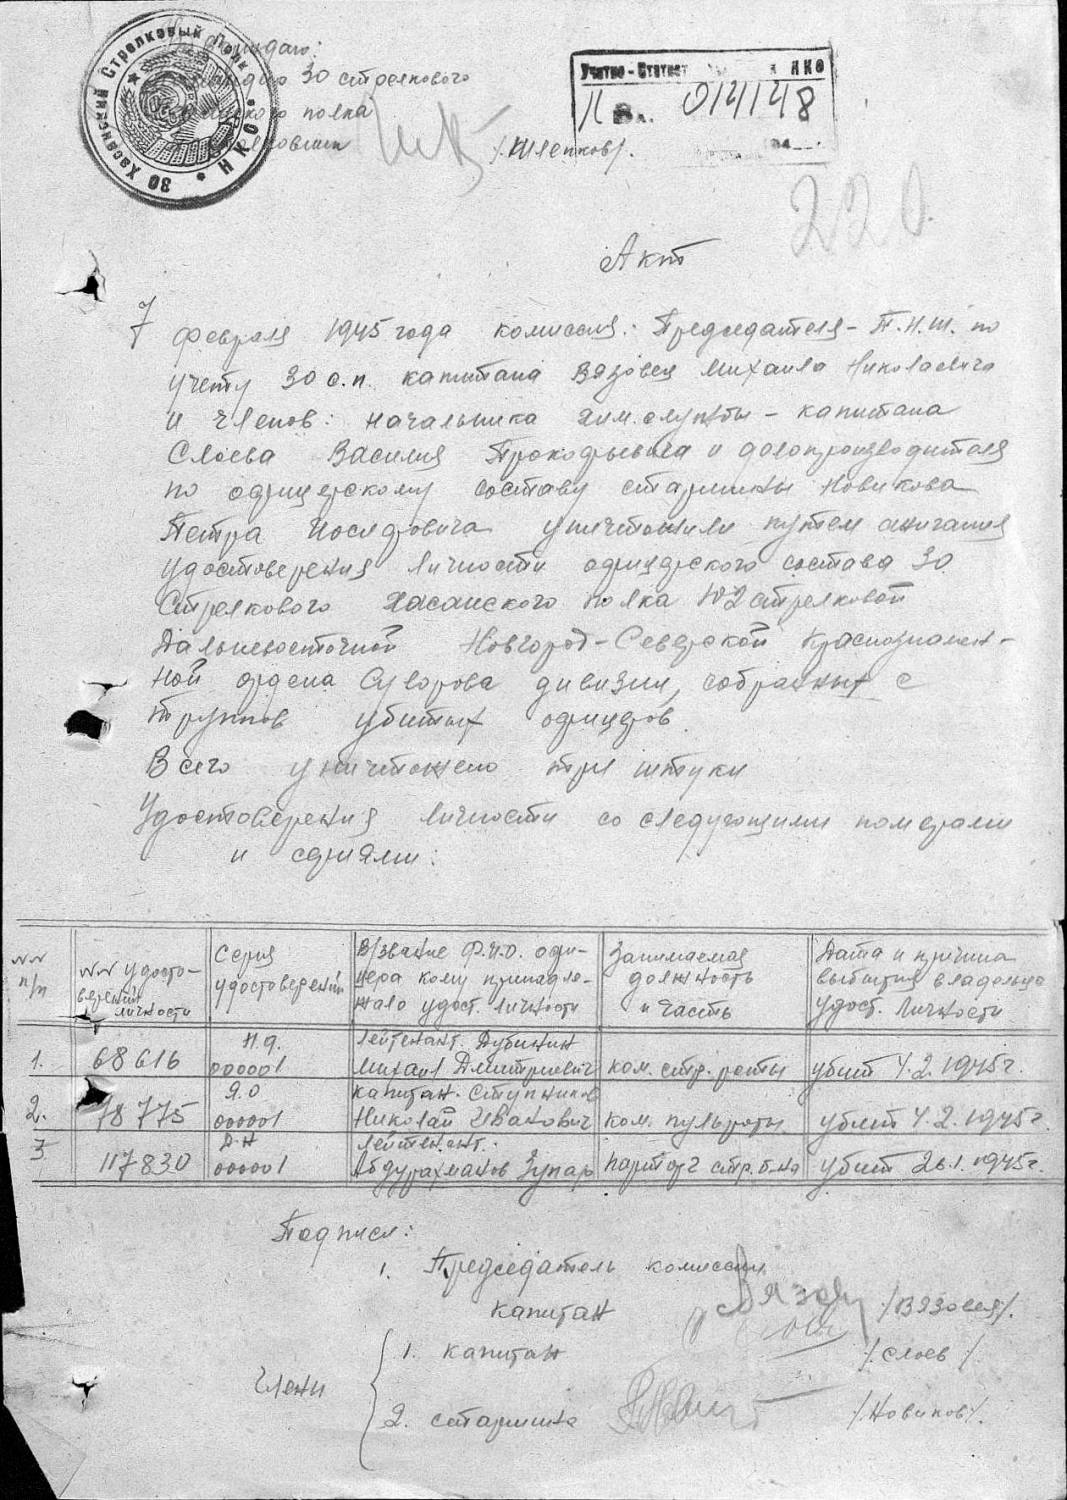 30 Хасанский Стрелковый Полк
Н К О
30 стрелкового
полка
/Шлепков/.
Учетно-Статист НКО
II В. 014148
194
220
Акт
7 февраля 1945 года комиссия: Председателя - П.Н.Ш. по
учету 30 с.п. капитана Вязовец Михаила Николаевича
и членов: начальника хим.службы - капитана
Слоева Василия Прокофьевича и делопроизводителя
по офицерскому составу старшины Новикова
Петра Иосифовича уничтожили путем сжигания
удостоверения личности офицерского состава 30
Стрелкового Хасанского полка 102 стрелковой
Дальневосточной Новгород-Северской Краснознамен-
ной ордена Суворова дивизии, собранных с
трупов убитых офицеров.
Всего уничтожено три штуки
Удостоверения личности со следующими номерами
и сериями:
№№ п/п
№№ удосто-
верений
личности
Серия
удостоверений
В/звание Ф.И.О. офи-
цера кому принадле-
жало удост. личности
Занимаемая
должность
и часть
Дата и причина
выбытия владельца
удост. личности
1. 68616 000001 лейтенант. Дубинин
Михаил Дмитриевич ком. стр. роты убит 4.2.1945г.
2. 78775 Я.О 000001 капитан. Ступников
Николай Иванович ком. пульроты убит 4.2.1945г.
3 117830 Д-Н 000001 лейтенант.
Абдурахманов Зупар парторг стр. б-на убит 26.1.1945г.
Подписи:
1. Председатель комиссии
капитан /Вязовец/.
Члены
1. капитан /Слоев/
2. старшина /Новиков/.